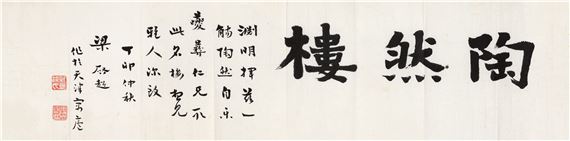 陶然樓
淵明揮茲一
觴陶然自樂
夔彝仁兄以
此名樓想見
雅人深致
丁卯仲秋
梁啟超
作於天津寓廬